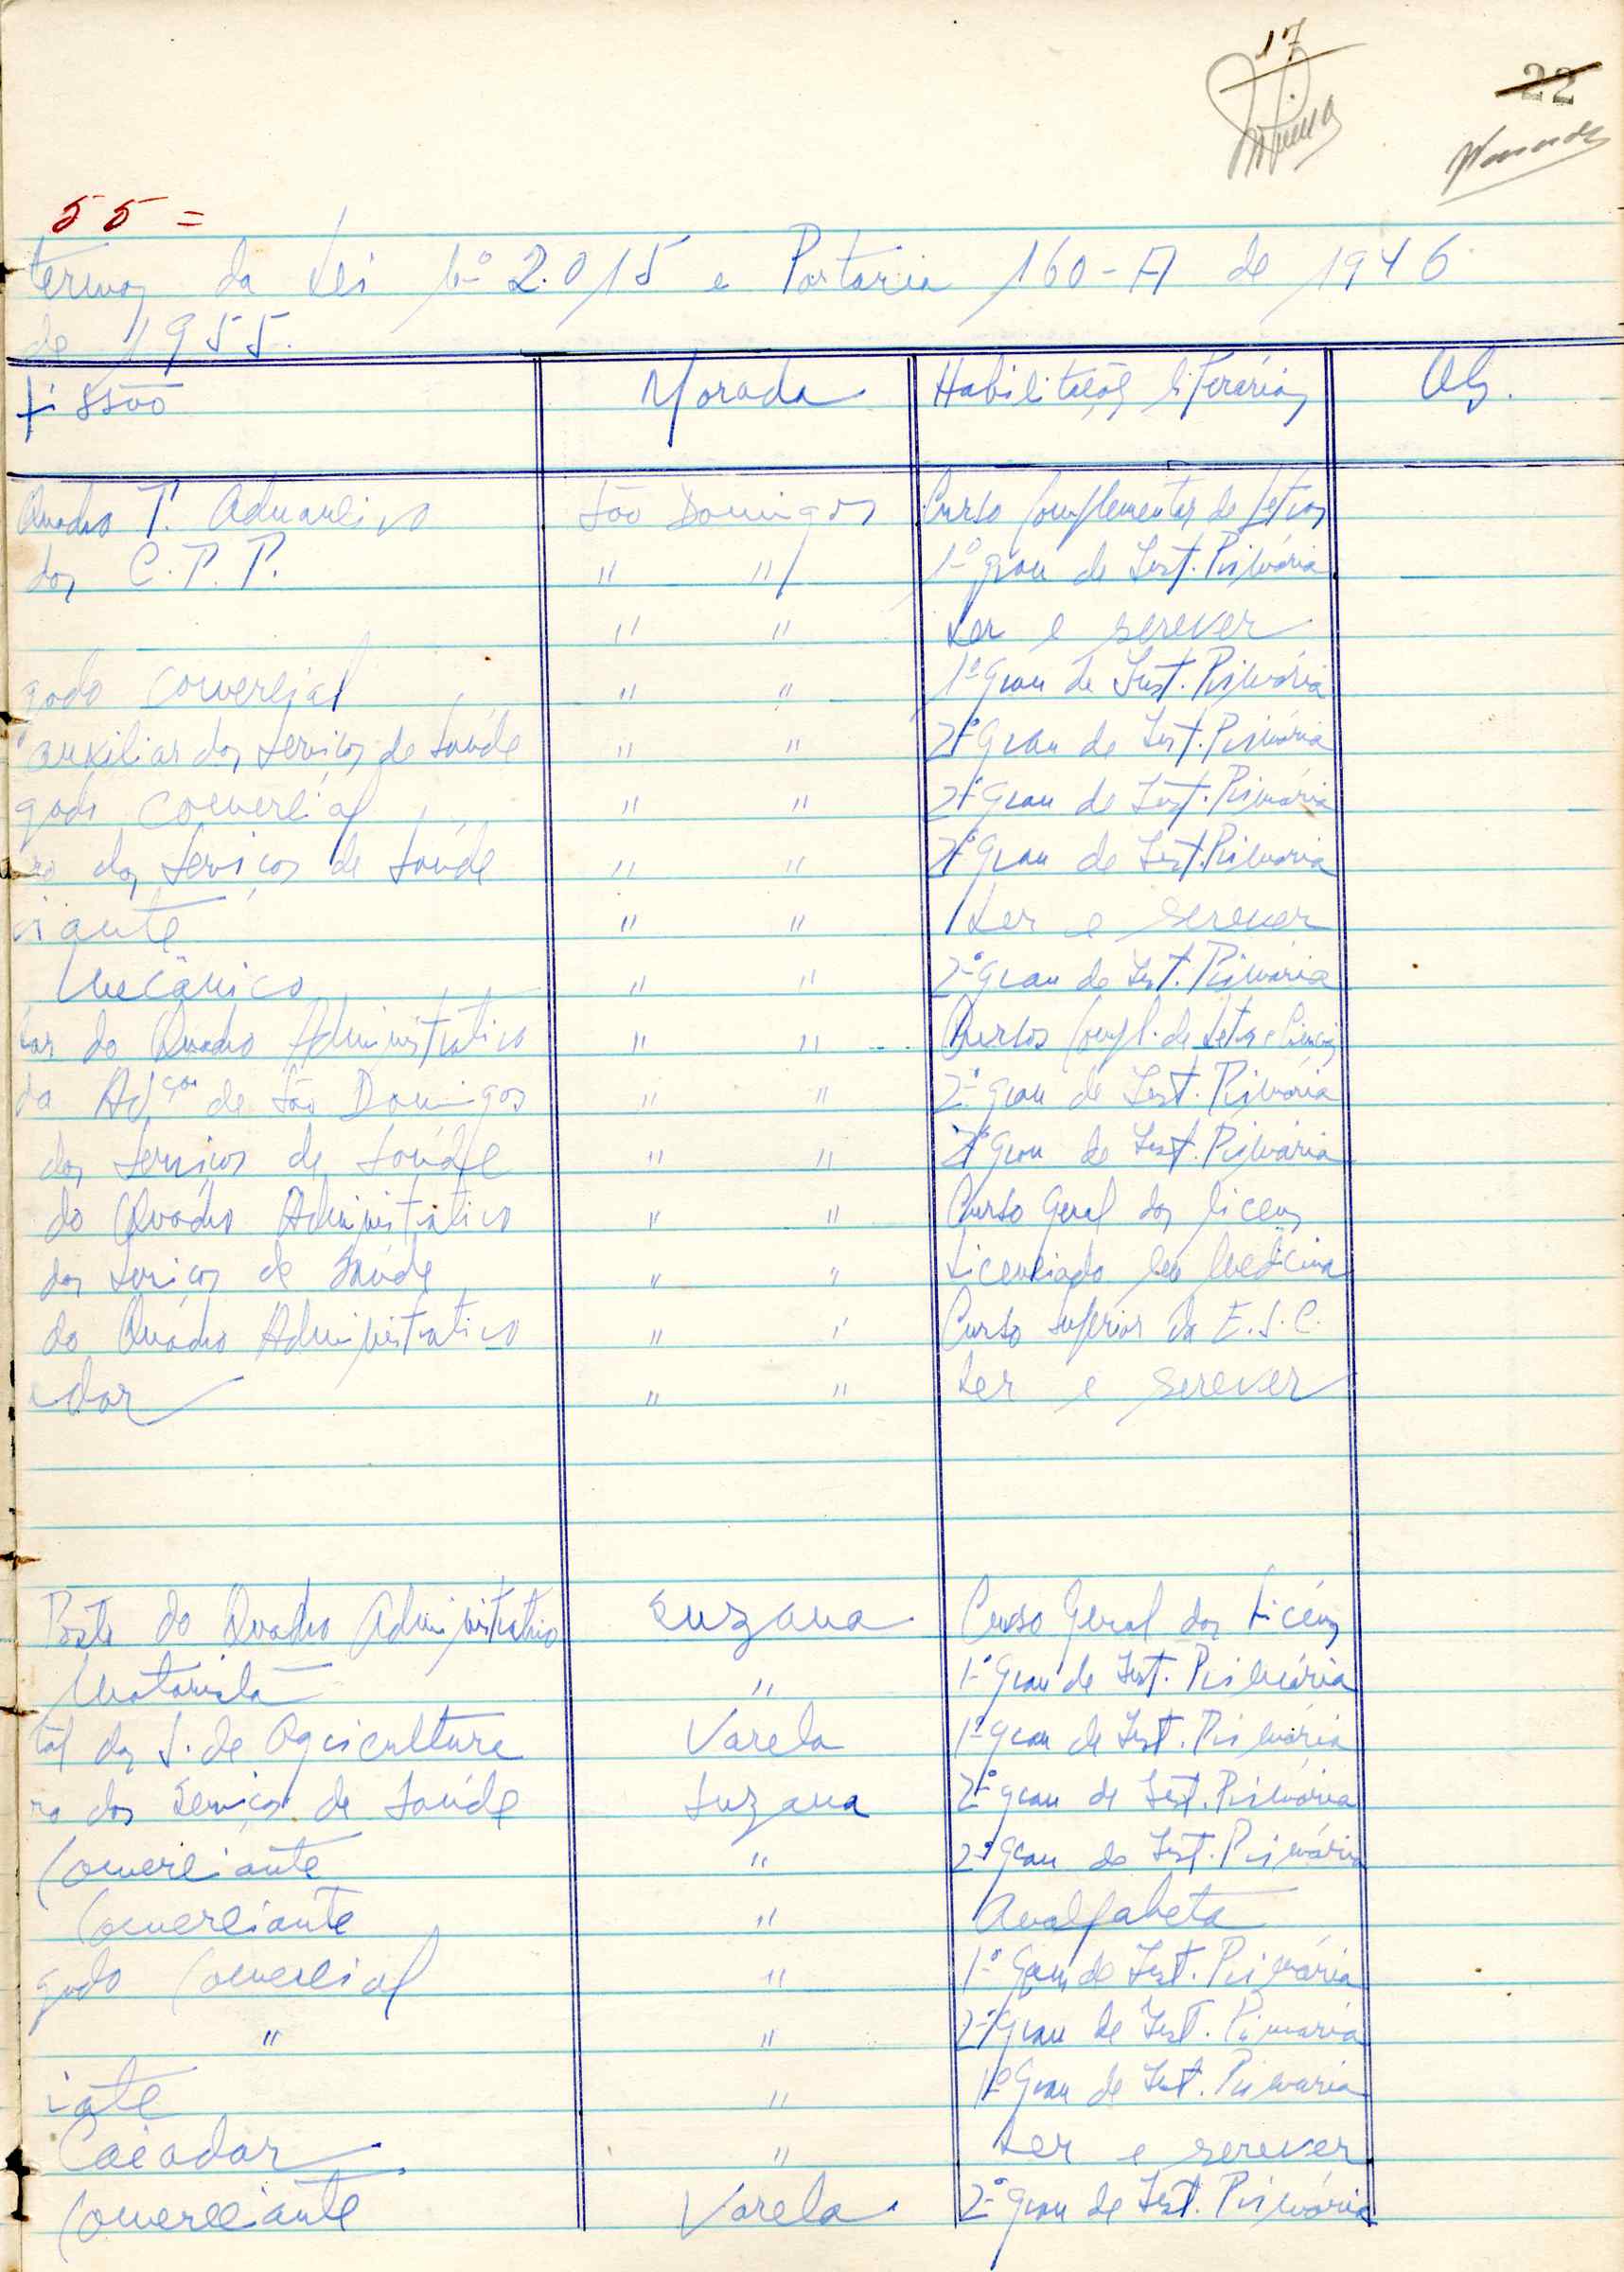 17
22
55 =
termos da Lei nº 2.015 e Portaria 160-A de 1946
de 1955.
fissão Morada Habilitações literárias Obs.
Quadro T. Aduaneiro São Domingos Curso Complementar de Letras
dos C.T.T. " " 1º grau de Inst. Primária
" " Ler e screver
gado comercial " " 1º Grau de Inst. Primária
auxiliar dos Serviços de Saúde " " 2º Grau de Inst. Primária
gado Comercial " " 2º Grau de Inst. Primária
ro dos Serviços de Saúde " " 2º Grau de Inst. Primária
ciante " " Ler e screver
Mecânico " " 2º Grau de Inst. Primária
iar do Quadro Administrativo " " Cursos Compl. de Letras e Ciencias
da Adçao de São Domingos " " 2º grau de Inst. Primária
dos Serviços de Saúde " " 2º Grau de Inst. Primária
do Quadro Administrativo " " Curso Geral dos liceus
dos Serviços de Saúde " " Licenciado em Medicina
do Quadro Administrativo " " Curso superior da E.S.C.
ador " " Ler e screver
Posto do Quadro Administrativo Suzana Curso Geral dos Licéus
Motorista " 1º Grau de Inst. Primária
tal dos S. de Agricultura Varela 1º Grau de Inst. Primária
ro dos Serviços de Saúde Suzana 2º grau de Inst. Primária
Comerciante " 2º Grau de Inst. Primária
Comerciante " Analfabeta
gado Comercial " 1º Grau de Inst. Primária
" " 2º Grau de Inst. Primaria
iate " 1º Grau de Inst. Primaria
Caçador " Ler e screver
Comerciante Varela 2º grau de Inst. Primária